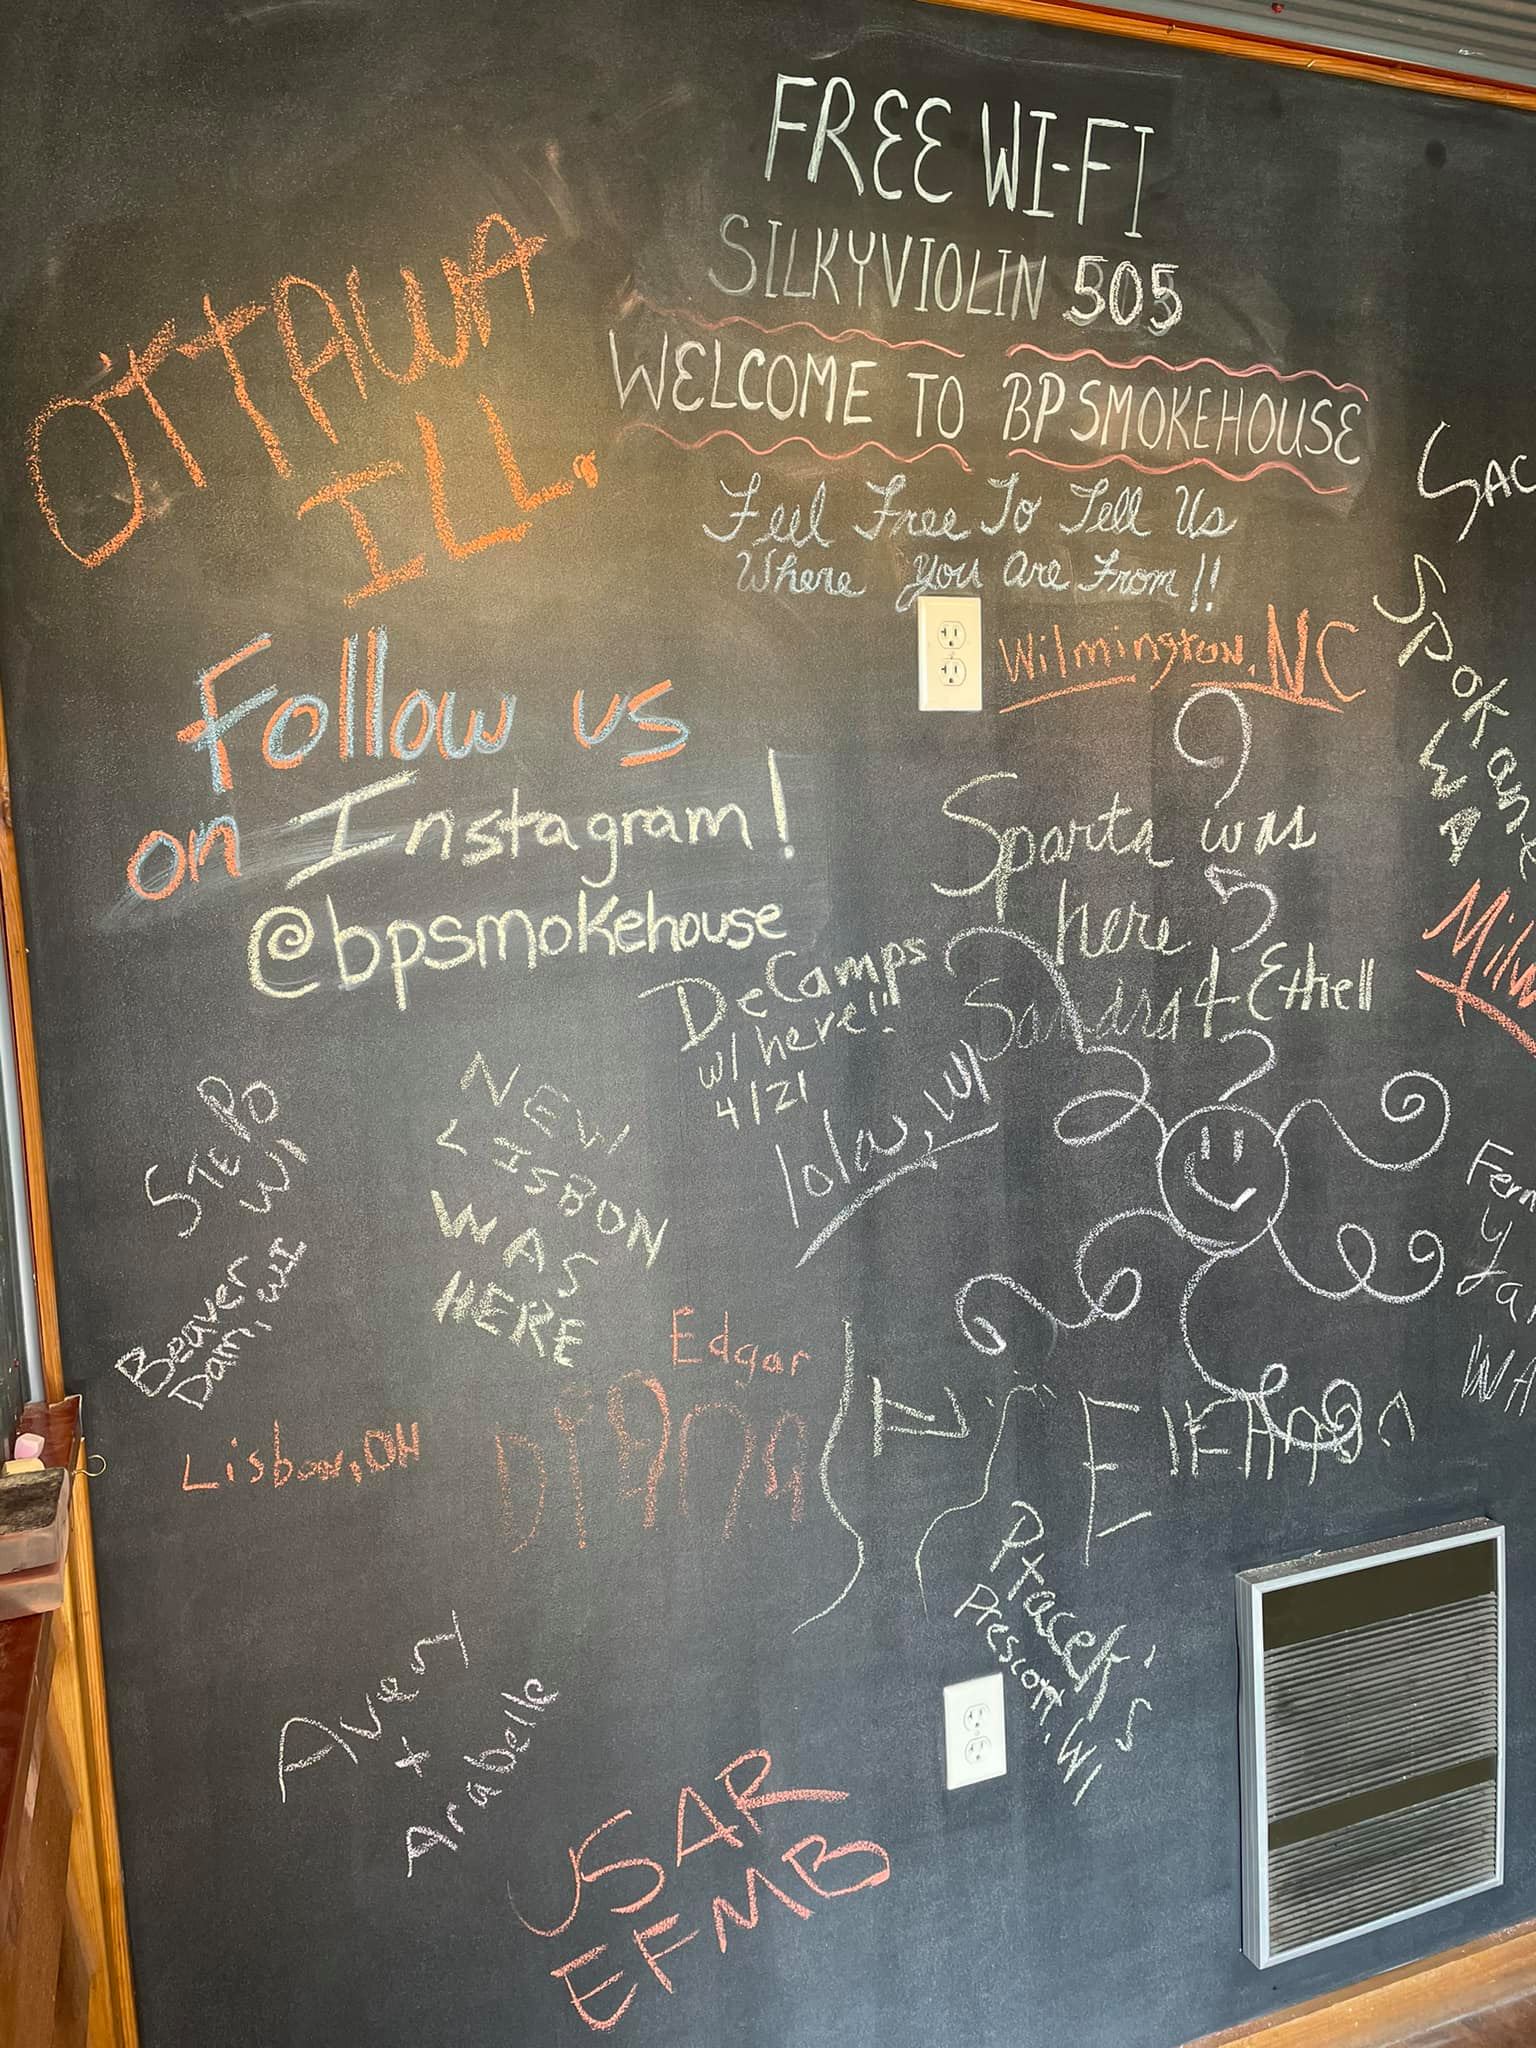 FREE WI-FI
SILKYVIOLIN 505
WELCOME TO BPSMOKEHOUSE
Feel Free To Tell Us
Where You Are From!!
OTTAWA
ILL.
Wilmington, NC
Follow us
on Instagram!
@bpsmokehouse
Sparta was
here
Sandra & Ethell
SPOKANE
WA
DeCamps
w/ here!!
4/21
STEPO
WI
NEW
LISBON
WAS
HERE
Beaver
Dam, WI
Edgar
Lisbon, OH
Prescott, WI
Avery
+
Arabelle
USAR
EFMB
WA